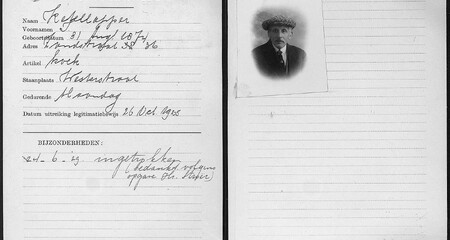 Naam Kesellapper
Voornamen S
Geboortedatum 31 Aug 1874
Adres Zandstraat 38 36
Artikel koek
Staanplaats Westerstraat
Gedurende Maandag
Datum uitreiking legitimatiebewijs 26 Oct 1923
BIJZONDERHEDEN:
24-6-29 ingetrokken
(bedankt volgens
opgave